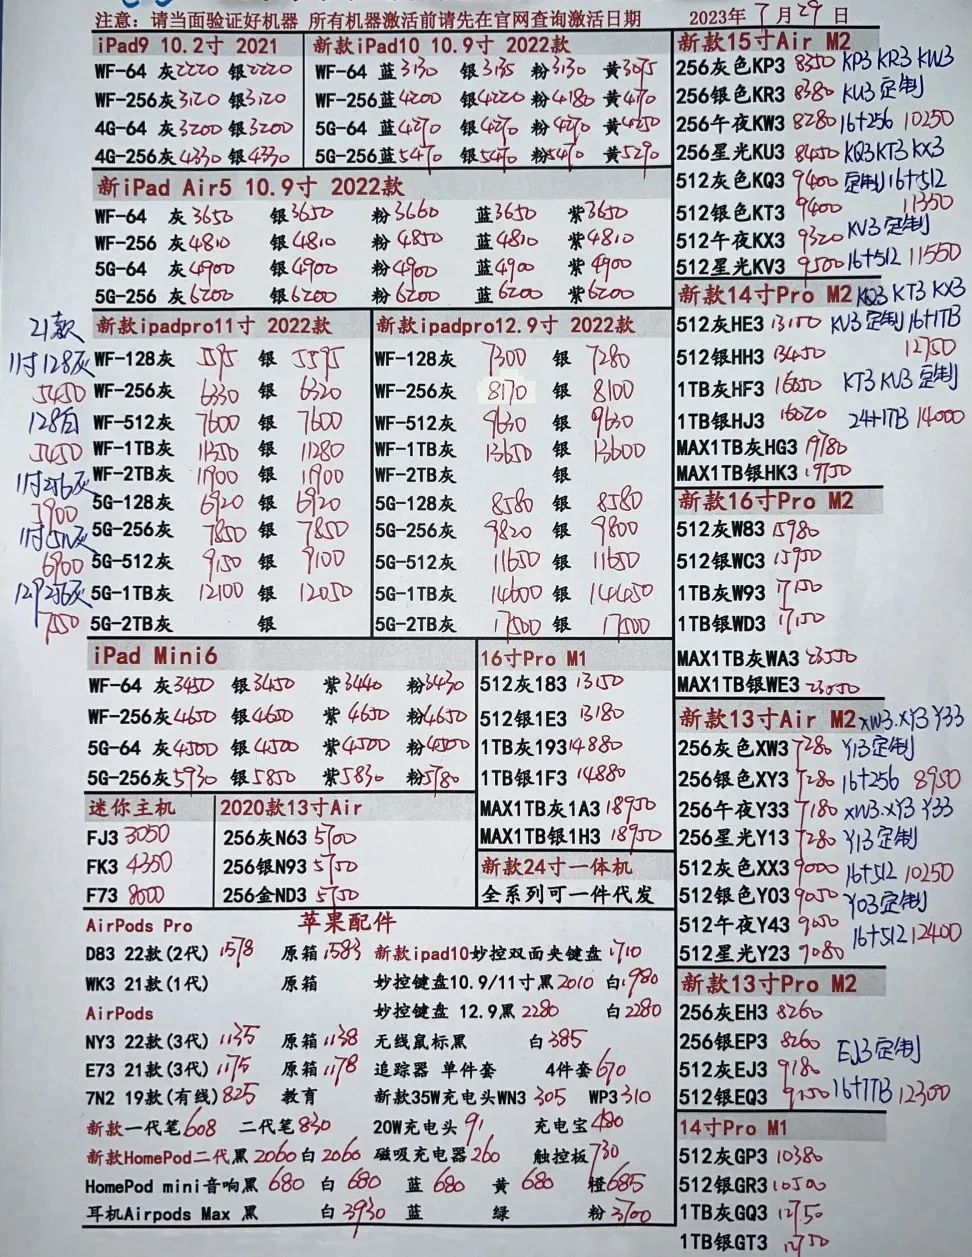 注意：请当面验证好机器 所有机器激活前请先在官网查询激活日期 2023年7月29日
iPad9 10.2寸 2021
WF-64 灰2220 银2220
WF-256灰3120 银3120
4G-64 灰3200 银3200
4G-256灰4330 银4330
新款iPad10 10.9寸 2022款
WF-64 蓝3130 银3135 粉3130 黄3075
WF-256蓝4200 银4220 粉4180 黄4170
5G-64 蓝4270 银4270 粉4270 黄4250
5G-256蓝5470 银5470 粉5470 黄5290
新iPad Air5 10.9寸 2022款
WF-64 灰3650 银3650 粉3660 蓝3650 紫3650
WF-256 灰4810 银4810 粉4850 蓝4810 紫4810
5G-64 灰4900 银4900 粉4900 蓝4900 紫4900
5G-256 灰6200 银6200 粉6200 蓝6200 紫6200
21款
11寸128灰
5450
128白
5450
11寸256灰
11寸512灰
6900
12.9 256灰
7550
新款ipadpro11寸 2022款
WF-128灰 5595 银 5595
WF-256灰 6330 银 6320
WF-512灰 7600 银 7600
WF-1TB灰 11350 银 11280
WF-2TB灰 11900 银 11900
5G-128灰 6920 银 6920
5G-256灰 7850 银 7850
5G-512灰 9150 银 9100
5G-1TB灰 12100 银 12050
5G-2TB灰 银
新款ipadpro12.9寸 2022款
WF-128灰 7300 银 7280
WF-256灰 8170 银 8100
WF-512灰 9630 银 9630
WF-1TB灰 13650 银 13600
WF-2TB灰 银
5G-128灰 8580 银 8580
5G-256灰 9820 银 9800
5G-512灰 11650 银 11650
5G-1TB灰 14600 银 14450
5G-2TB灰 17500 银 17500
iPad Mini6
WF-64 灰3450 银3450 紫3440 粉3430
WF-256灰4650 银4650 紫4650 粉4650
5G-64 灰4500 银4500 紫4500 粉4500
5G-256灰5930 银5850 紫5830 粉5780
16寸Pro M1
512灰183 13150
512银1E3 13180
1TB灰193 14880
1TB银1F3 14880
MAX1TB灰1A3 18950
MAX1TB银1H3 18950
迷你主机
FJ3 3050
FK3 4350
F73 8000
2020款13寸Air
256灰N63 5700
256银N93 5750
256金ND3 5750
新款24寸一体机
全系列可一件代发
苹果配件
AirPods Pro
DB3 22款(2代) 1578 原箱1583
WK3 21款(1代) 原箱
AirPods
NY3 22款(3代) 1135 原箱1138
E73 21款(3代) 1175 原箱1178
7N2 19款(有线) 825 教育
新款一代笔608 二代笔830
新款HomePod二代黑2060 白2060
HomePod mini音响黑 680 白 680 蓝 680 黄 680 橙685
耳机Airpods Max 黑 白3930 蓝 绿 粉3700
新款ipad10妙控双面夹键盘1710
妙控键盘10.9/11寸黑2010 白1980
妙控键盘 12.9黑2280 白2280
无线鼠标黑 白385
追踪器 单件套 4件套670
新款35W充电头WN3 305 WP3 310
20W充电头 91 充电宝480
磁吸充电器260 触控板730
新款15寸Air M2
256灰色KP3 8350 KP3 KR3 KW3
256银色KR3 8380 KU3定制
256午夜KW3 8280 16+256 10250
256星光KU3 8450 KQ3KT3 KX3
512灰色KQ3 9400 定制16+512
512银色KT3 9400 11350
512午夜KX3 9320 KV3定制
512星光KV3 9500 16+512 11550
新款14寸Pro M2 KQ3 KT3 KX3
512灰HE3 13150 KV3定制16+1TB
512银HH3 13450 12750
1TB灰HF3 16050 KT3 KU3定制
1TB银HJ3 16020 24+1TB 14000
MAX1TB灰HG3 19780
MAX1TB银HK3 19750
新款16寸Pro M2
512灰W83 15980
512银WC3 15950
1TB灰W93 17150
1TB银WD3 17150
MAX1TB灰WA3 23550
MAX1TB银WE3 23050
新款13寸Air M2 XW3.XY3 Y33
256灰色XW3 7280 Y13定制
256银色XY3 7280 16+256 8950
256午夜Y33 7180 XW3.XY3 Y33
256星光Y13 7280 Y13定制
512灰色XX3 9000 16+512 10250
512银色Y03 9050 Y03定制
512午夜Y43 9050 16+512 12400
512星光Y23 9080
新款13寸Pro M2
256灰EH3 8260
256银EP3 8260 EJ3定制
512灰EJ3 9180
512银EQ3 9250 16+1TB 12300
14寸Pro M1
512灰GP3 10380
512银GR3 10500
1TB灰GQ3 12750
1TB银GT3 12750